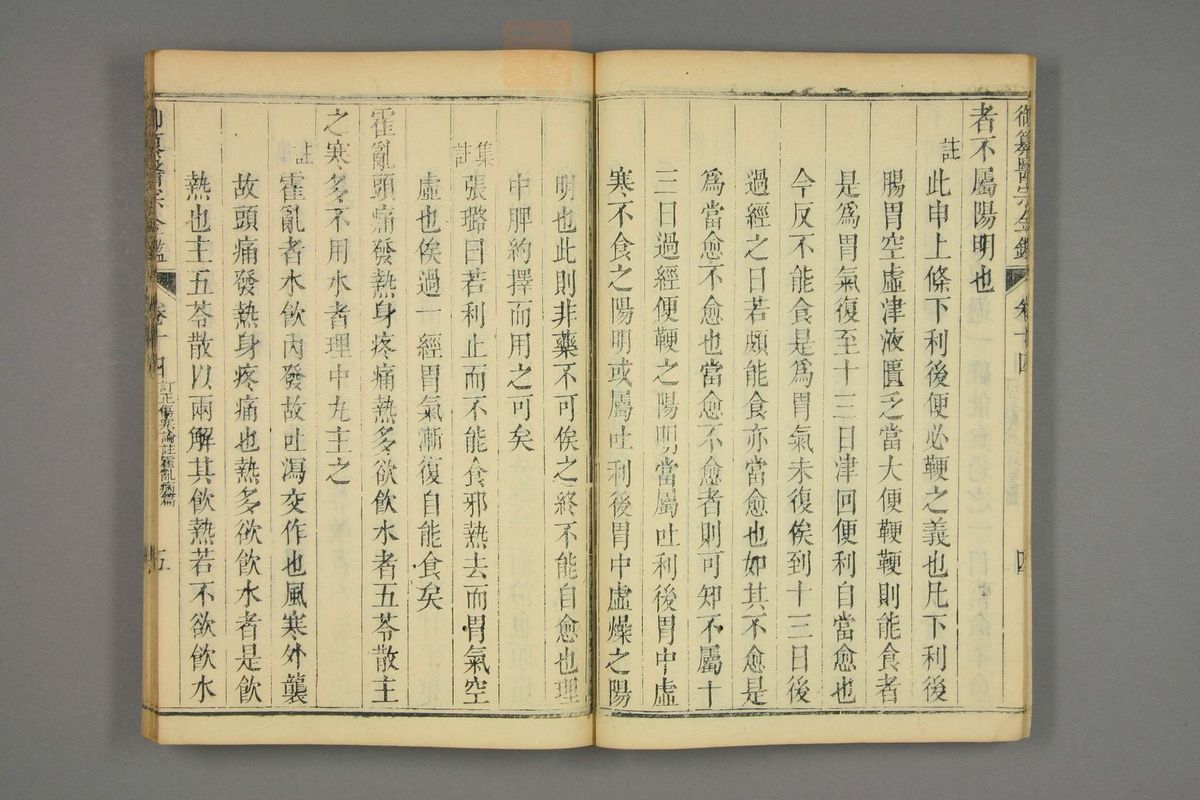 御纂醫宗金鑑 卷十四 四
者不屬陽明也
註
此申上條下利後便必鞕之義也凡下利後
腸胃空虛津液匱乏當大便鞕鞕則能食者
是爲胃氣復至十三日津回便利自當愈也
今反不能食是爲胃氣未復俟到十三日後
過經之日若頗能食亦當愈也如其不愈是
爲當愈不愈也當愈不愈者則可知不屬十
三日過經便鞕之陽明當屬吐利後胃中虛
寒不食之陽明或屬吐利後胃中虛燥之陽
明也此則非藥不可俟之終不能自愈也理
中脾約擇而用之可矣
集註
張璐曰若利止而不能食邪熱去而胃氣空
虛也俟過一經胃氣漸復自能食矣
霍亂頭痛發熱身疼痛熱多欲飲水者五苓散主
之寒多不用水者理中丸主之
註
霍亂者水飲內發故吐瀉交作也風寒外襲
故頭痛發熱身疼痛也熱多欲飲水者是飲
熱也主五苓散以兩解其飲熱若不欲飲水
御纂醫宗金鑑 卷十四 訂正傷寒論註霍亂病篇 五